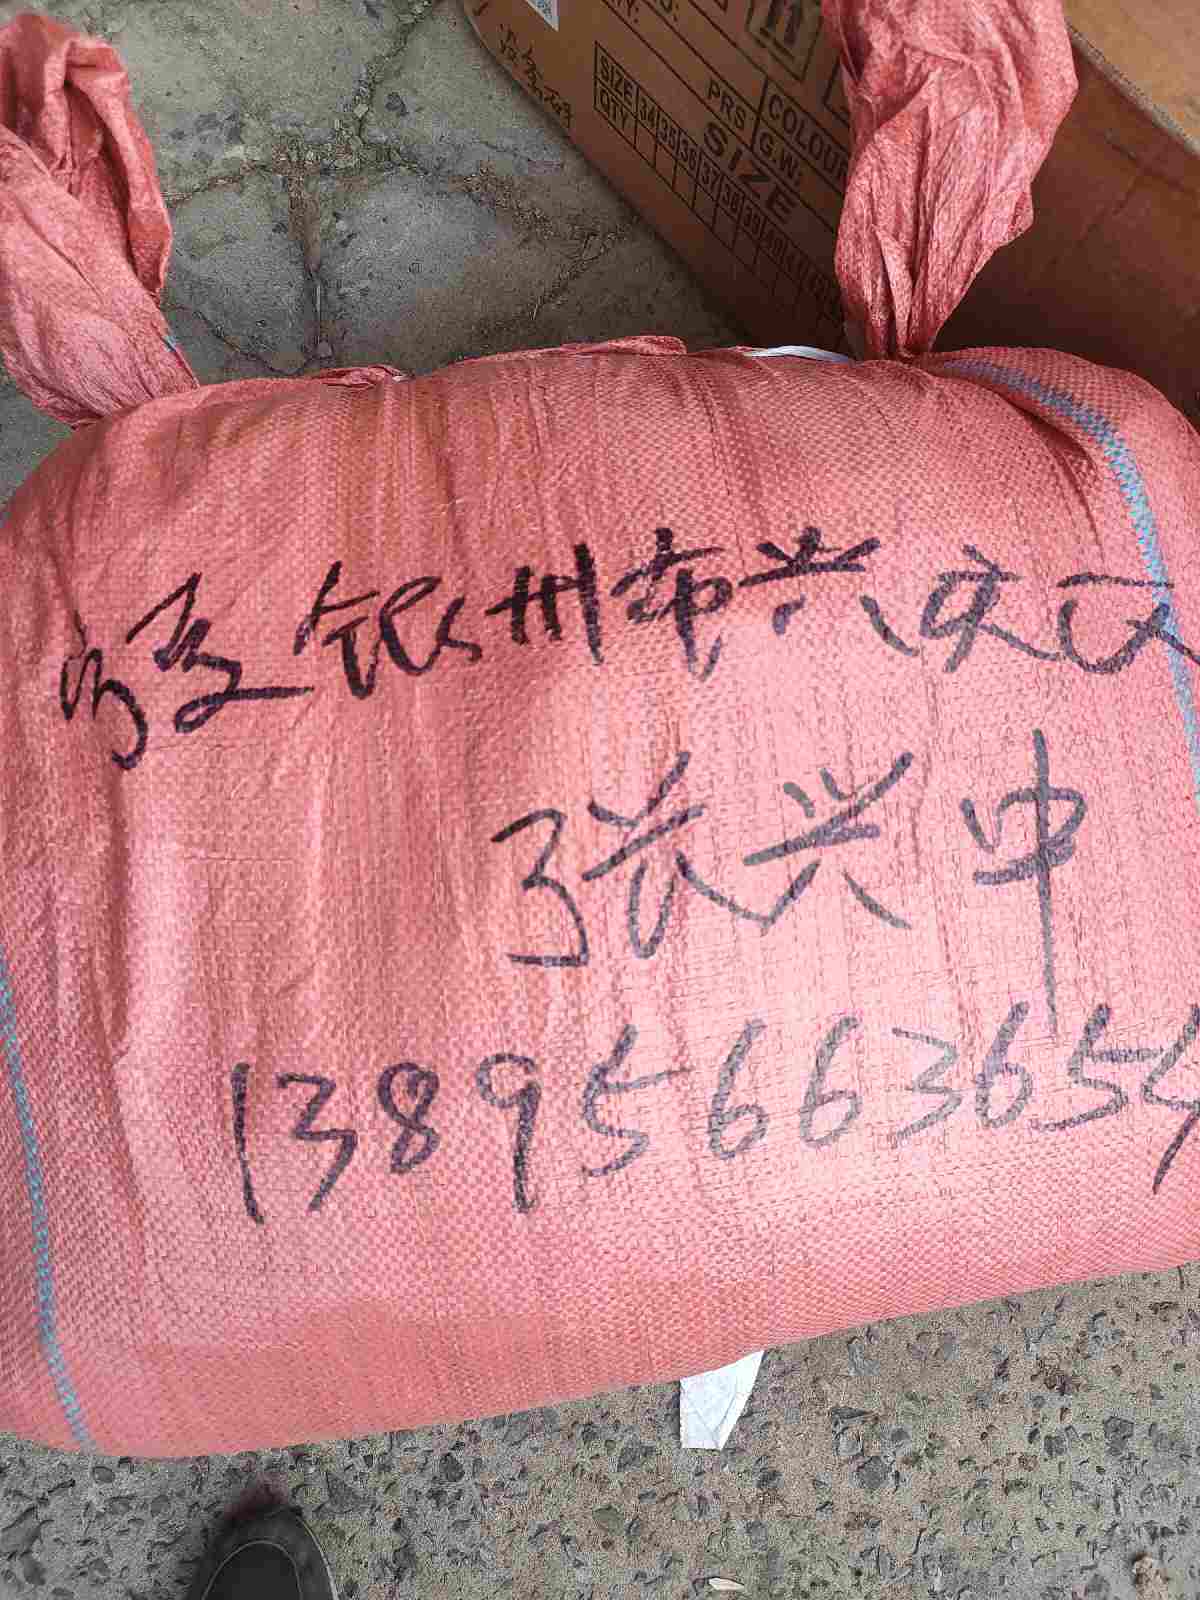 COLOUR
PRS G.W:
SIZE 34 35 36 37 38 39 40
QTY
SIZE
宁夏银川市兴庆区
张兴中
13895663654